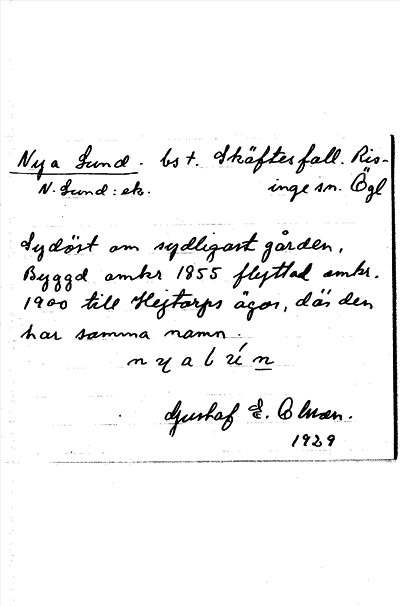 Nya Lund. bst. Skäftesfall. Ris-
N. Lund: ek. inge sn. Ögl
Sydöst om sydligast gården,
Byggd omkr 1855 flyttad omkr.
1900 till Hejtorps ägor, där den
har samma namn.
Gustaf E. Olson.
1929